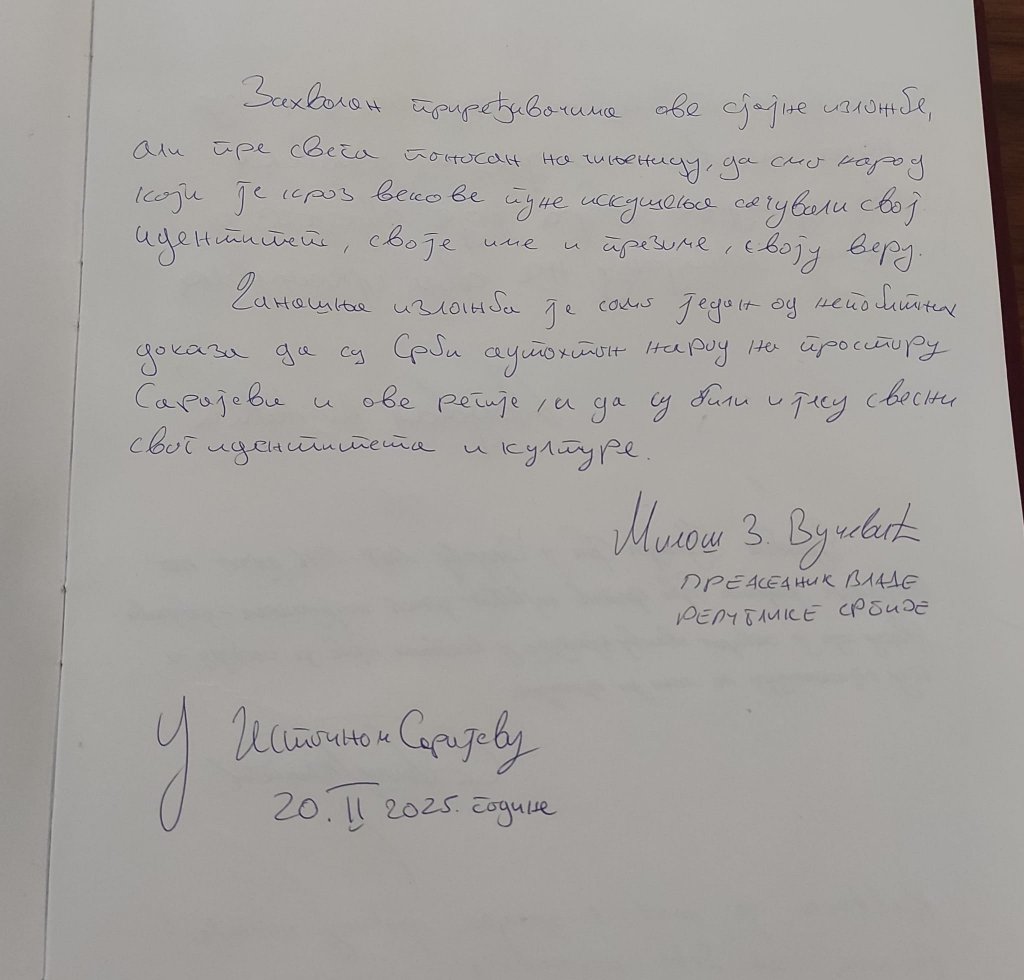 Захвалан приређивачима ове сјајне изложбе,
али пре свега поносан на чињеницу, да смо народ
који је кроз векове пуне искушења сачували свој
идентитет, своје име и презиме, своју веру.
Данашња изложба је само један од непобитних
доказа да су Срби аутохтон народ на простору
Сарајева и ове регије, и да су били и јесу свесни
свог идентитета и културе.
Милош З. Вучевић
ПРЕДСЕДНИК ВЛАДЕ
РЕПУБЛИКЕ СРБИЈЕ
У Источном Сарајеву
20. II 2025. године